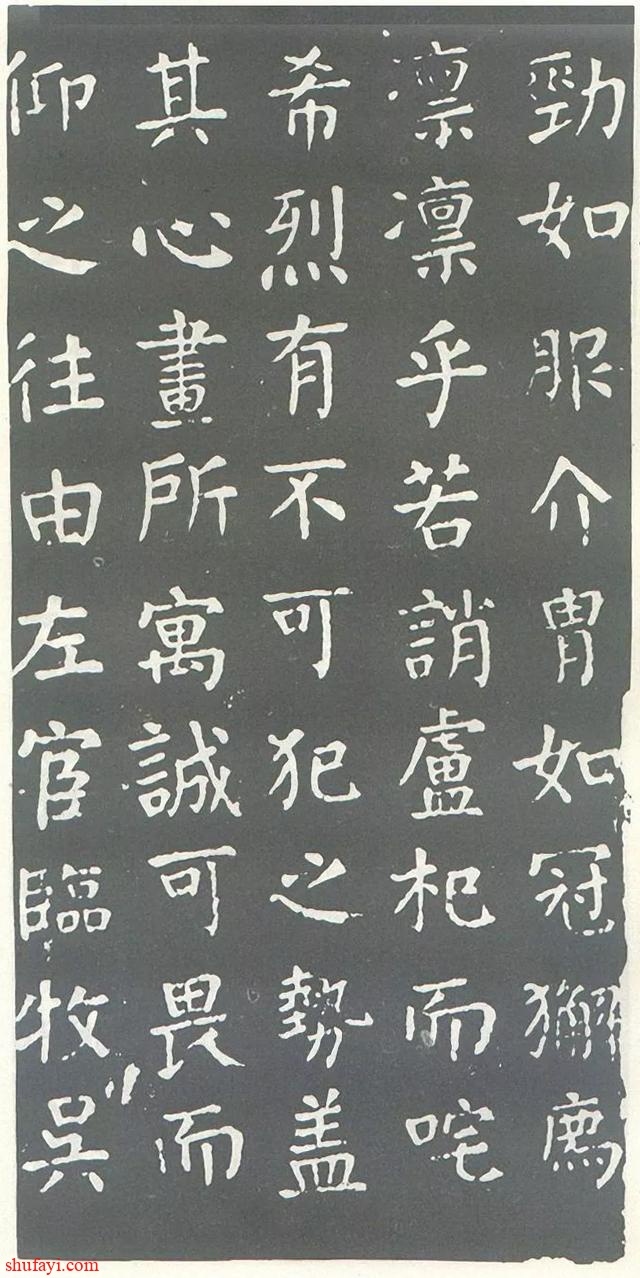 勁如服介冑如冠獬廌
凛凛乎若誚盧杞而咤
希烈有不可犯之勢盖
其心畫所寓誠可畏而
仰之往由左宦臨牧吴
shufayi.com